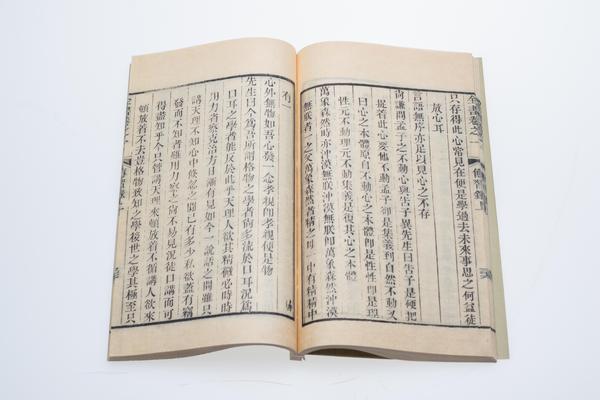 全書卷之一 傳習錄
只存得此心常見在便是學過去未來事思之何益徒
放心耳
言語無序亦足以見心之不存
尚謙問孟子之不動心與告子異先生曰告子是硬把
捉着此心要他不動孟子卻是集義到自然不動又
曰心之本體原自不動心之本體卽是性性卽是理
性元不動理元不動集義是復其心之本體
萬象森然時亦沖漠無朕沖漠無朕卽萬象森然沖漠
無朕者一之父萬象森然者精之母一中有精精中
有一
心外無物如吾心發一念孝親卽孝親便是物
先生曰今爲吾所謂格物之學者尙多流於口耳況爲
口耳之學者能反於此乎天理人欲其精微必時時
用力省察克治方日漸有見如今一說話之閒雖只
講天理不知心中倏忽之閒已有多少私欲蓋有竊
發而不知者雖用力察之尙不易見況徒口講而可
得盡知乎今只管講天理來頓放着不循講人欲來
頓放着不去豈格物致知之學後世之學其極至只